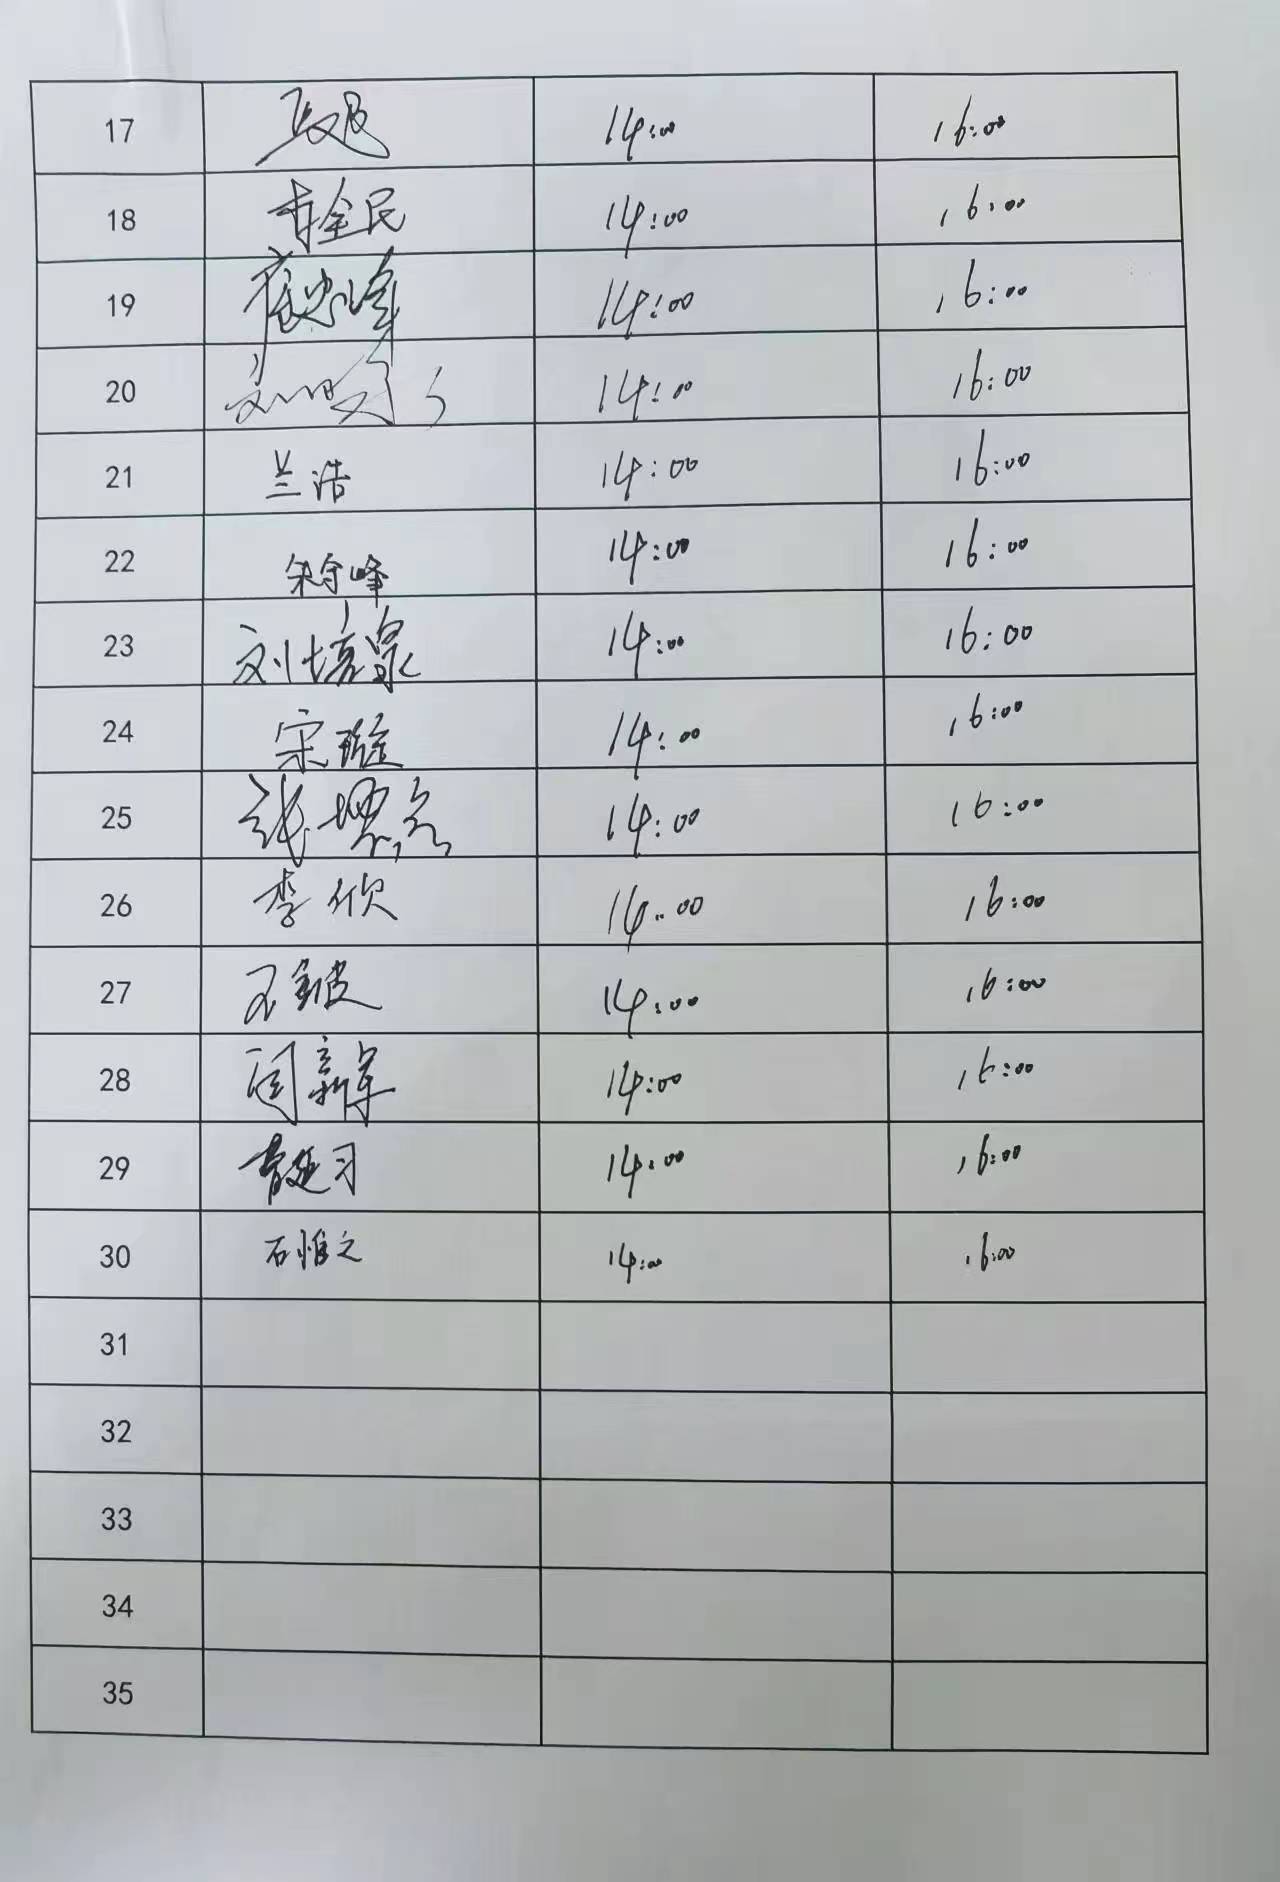 17 14:00 16:00
18 李全民 14:00 16:00
19 14:00 16:00
20 14:00 16:00
21 兰浩 14:00 16:00
22 宋守峰 14:00 16:00
23 刘培泉 14:00 16:00
24 宋璇 14:00 16:00
25 14:00 16:00
26 李欣 14:00 16:00
27 14:00 16:00
28 闫新军 14:00 16:00
29 14:00 16:00
30 石惟之 14:00 16:00
31
32
33
34
35